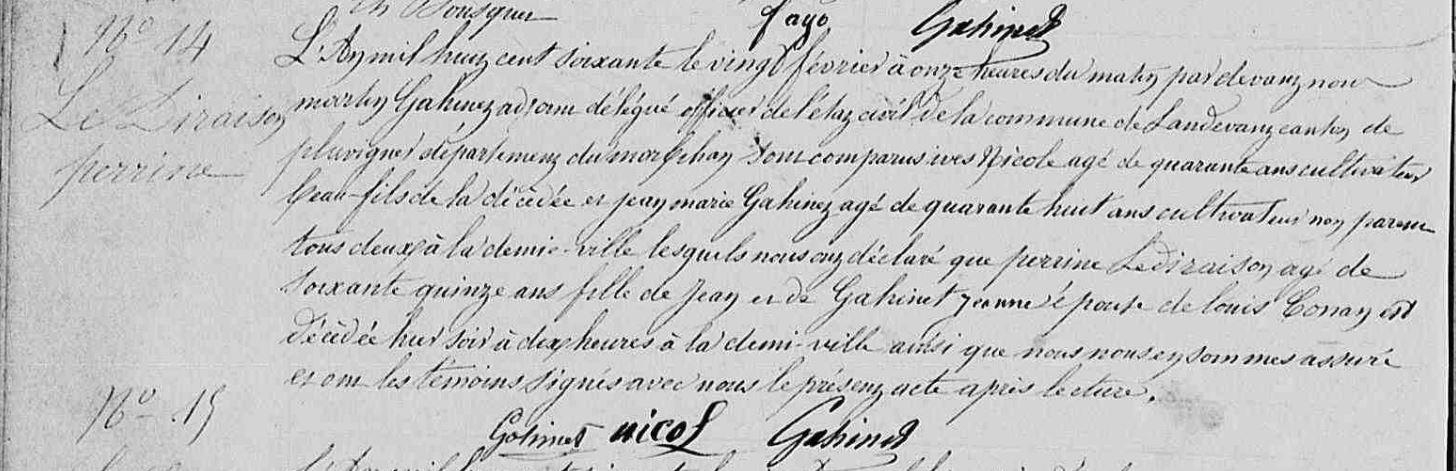 fayo Gahinet
N° 14
Le Diraison
perrine
L'An mil huit cent soixante le vingt février à onze heures du matin par devant nous
martin Gahinet adjoint délégué officier de l'état civil de la commune de Landevant canton de
pluvigner département du morbihan sont comparus ives Nicole agé de quarante ans cultivateur
beau-fils de la décèdée et jean marie Gahinet agé de quarante huit ans cultivateur non parent
tous deux à la demie-ville lesquels nous ont déclaré que perrine Le diraison agé de
soixante quinze ans fille de Jean et de Gahinet jeanne épouse de louis Conan est
décèdée hier soir à dix heures à la demi-ville ainsi que nous nous en sommes assuré
et ont les témoins signés avec nous le présent acte après lecture.
Gahinet nicol Gahinet
N° 15